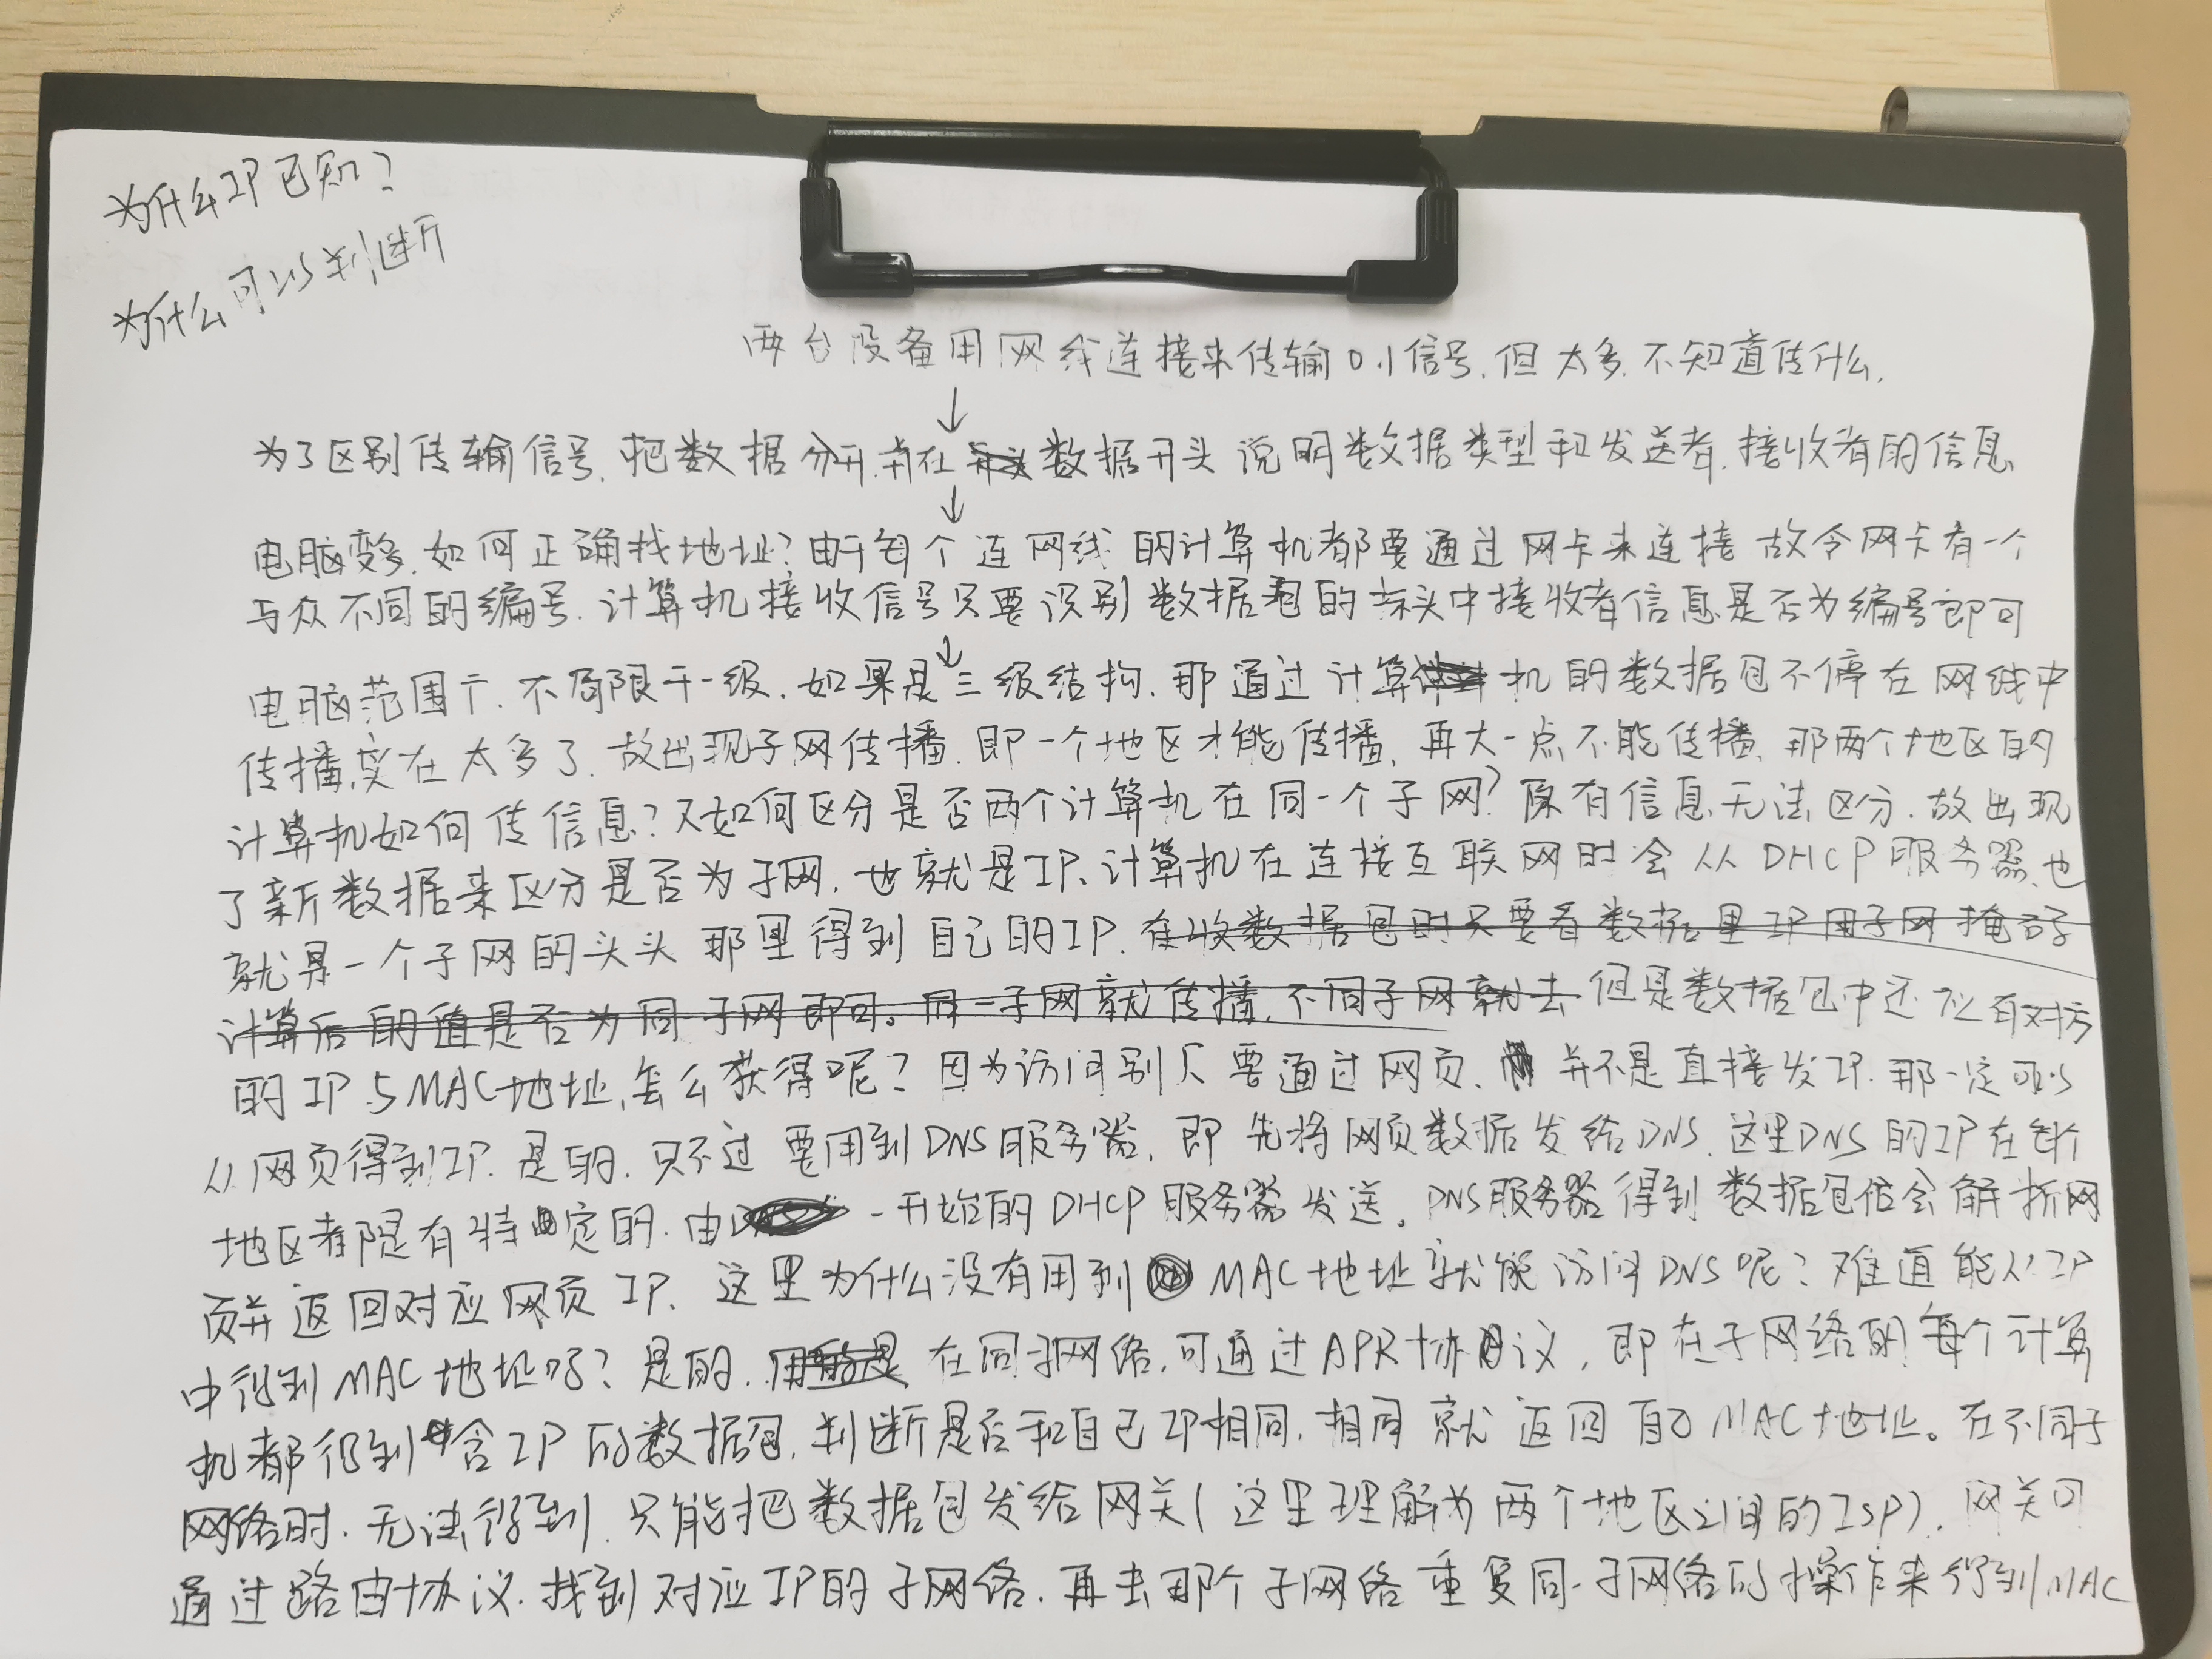 为什么IP已知?
为什么可以判断
两台设备用网线连接来传输0.1信号.但太多.不知道传什么.
↓
为了区别传输信号.把数据分开.并在数据开头说明数据类型和发送者.接收者的信息
↓
电脑变多.如何正确找地址?由于每个连网线的计算机都要通过网卡来连接 故令网卡有一个
与众不同的编号.计算机接收信号只要识别数据包的标头中接收者信息是否为编号即可
↓
电脑范围广.不局限于一级.如果是三级结构.那通过计算机的数据包不停在网线中
传播,实在太多了.故出现子网传播.即一个地区才能传播.再大一点不能传播.那两个地区的
计算机如何传信息?又如何区分是否两个计算机在同一个子网?原有信息无法区分.故出现
了新数据来区分是否为子网.也就是IP、计算机在连接互联网时会从DHCP服务器、也
就是一个子网的头头那里得到自己的IP.在收数据包时只要看数据里IP用子网掩码
计算后的值是否为同一子网即可。同一子网就传播,不同子网就去 但是数据包中还应有对方
的IP与MAC地址,怎么获得呢?因为访问别人要通过网页、并不是直接发IP.那一定可以
从网页得到IP.是的.只不过要用到DNS服务器.即先将网页数据发给DNS.这里DNS的IP在每个
地区都是有特定的.由一开始的DHCP服务器发送。DNS服务器得到数据包后会解析网
页并返回对应网页IP、这里为什么没有用到MAC地址就能访问DNS呢?难道能从IP
中得到MAC地址吗?是的.在同子网络,可通过APR协议,即在子网络的每个计算
机都得到含IP的数据包,判断是否和自己IP相同.相同就返回自己MAC地址。在不同子
网络时.无法得到.只能把数据包发给网关(这里理解为两个地区之间的ISP).网关可
通过路由协议.找到对应IP的子网络.再去那个子网络重复同一子网络的操作来得到MAC